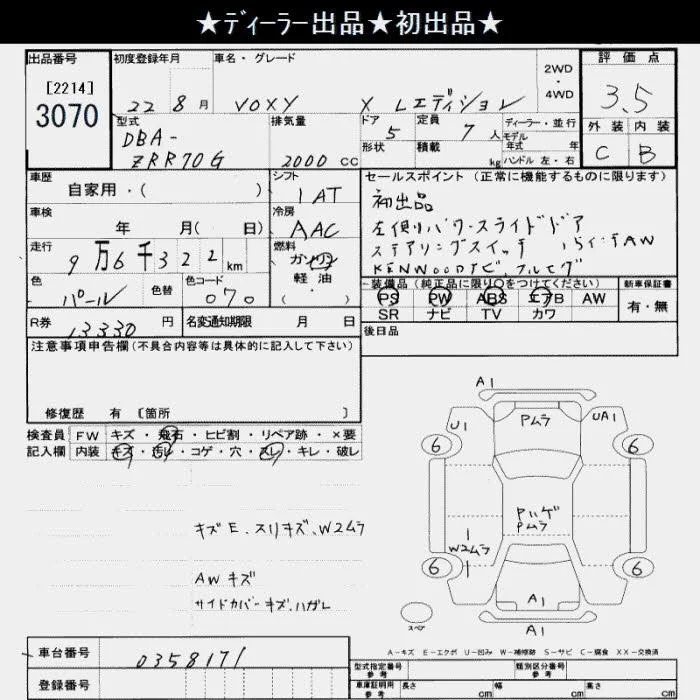 ★ディーラー出品★初出品★
出品番号
[2214]
3070
初度登録年月
22 8 月
車名・グレード
VOXY X Lエディション
2WD
・
4WD
評価点
3.5
外装 内装
C B
型式
DBA-
ZRR70G
排気量
2000 CC
ドア
5
形状
定員
7 人
積載
kg
ディーラー・並行
モデル
年式 年
ハンドル 左・右
車歴
自家用・( )
シフト
1AT
車検
年 月( 日)
冷房
AAC
走行
9 万 6 千 3 2 2 km
燃料
ガソリン
軽油
( )
色
パール
色替
色コード
070
R券
13330 円
名変通知期限 月 日
セールスポイント (正常に機能するものに限ります)
初出品
左側パワースライドドア
ステアリングスイッチ 15インチAW
KENWOODナビ、フルセグ
装備品 (純正品に限り○をつけてください)
PS PW ABS エアB AW
SR ナビ TV カワ
新車保証書
有・無
後日品
注意事項申告欄 (不具合内容等は具体的に記入して下さい)
修復歴 有 〔箇所 〕
検査員
記入欄
FW キズ・飛石・ヒビ割・リペア跡・×要
内装 キズ・汚レ・コゲ・穴・スレ・キレ・破レ
キズE、スリキズ、W2ムラ
AWキズ
サイドカバーキズ、ハガレ
A1
U1
Pムラ
UA1
6
6
Pハゲ
Pムラ
W2ムラ
6
6
A1
スペア
A1
A-キズ E-エクボ U-凹み W-補修跡 S-サビ C-腐食 XX-交換済
車台番号
0358171
登録番号
型式指定番号
参考
類別区分番号
参考
車庫証明用
参考
長さ cm
幅 cm
高さ cm